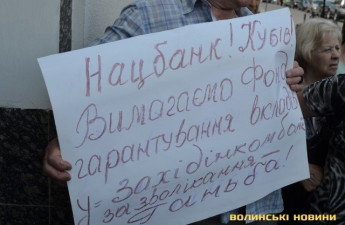 Нацбанк! Кубів!
Вимагаємо Фонд
гарантування вкладів
у західінкомбанк
за зволікання-
ганьба!
волинські новини